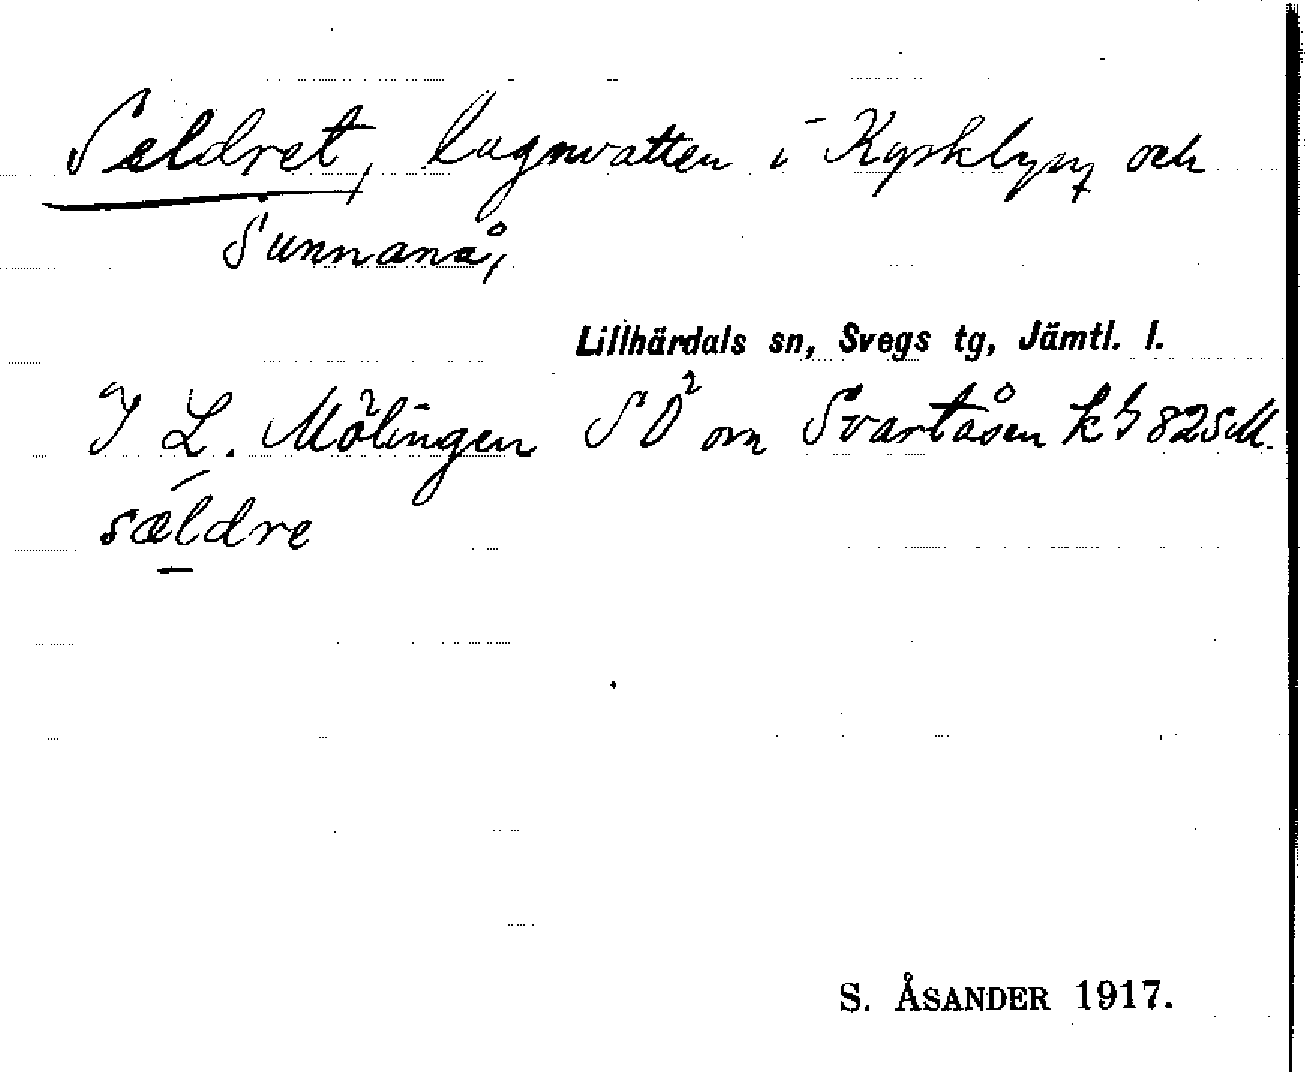 Seldret, lugnvatten i Kyrkbyn och
Sunnanå,
Lillhärdals sn, Svegs tg, Jämtl. l.
I L. Mölingen SO om Svartåsen kb 82SM.
sældre
S. ÅSANDER 1917.